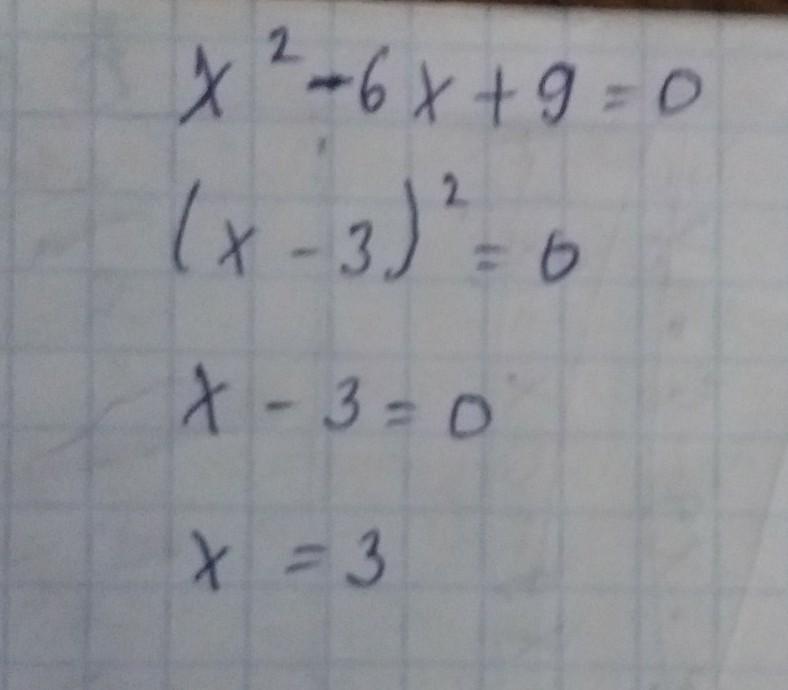 x² - 6x + 9 = 0
(x - 3)² = 0
x - 3 = 0
x = 3